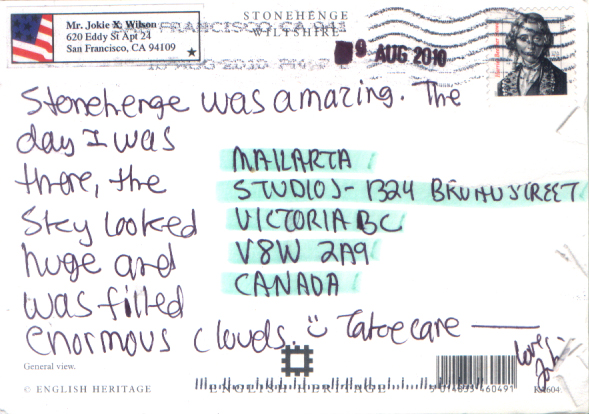 Mr. Jokie X. Wilson
620 Eddy St Apt 24
San Francisco, CA 94109
STONEHENGE
WILTSHIRE
SAN FRANCISCO CA 941
9 AUG 2010
Stonehenge was amazing. The
day I was
there, the
sky looked
huge and
was filled
enormous clouds. Take care
love,
MAILARTA
STUDIOS - 1324 BROAD STREET
VICTORIA BC
V8W 2A9
CANADA
General view.
© ENGLISH HERITAGE
ENGLISH HERITAGE